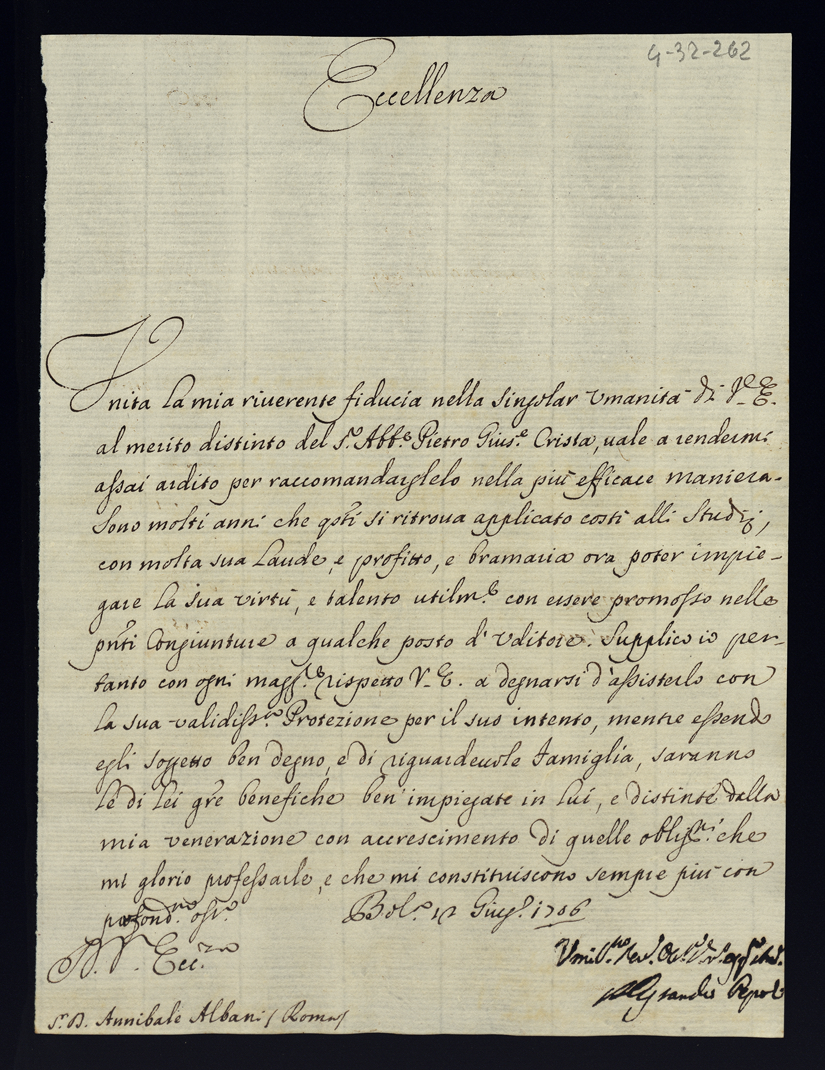 4-32-262
Eccellenza
Vnita la mia riuerente fiducia nella singolar vmanità di V. E.
al merito distinto del S.r Abb.e Pietro Gius.e Crista, uale a rendermi
assai ardito per raccomandarglelo nella più efficace maniera.
Sono molti anni che q̃sti si ritroua applicato costì alli Studij,
con molta sua Laude, e profitto, e bramaria ora poter impie-
gare la sua virtù, e talento utilm.e con essere promosso nelle
pñti Congiunture a qualche posto d'Vditore. Supplico io per-
tanto con ogni magg.re rispetto V. E. a degnarsi d'assisterlo con
la sua validiss.ma Protezione per il suo intento, mentre essendo
egli soggetto ben degno, e di riguardeuole Famiglia, saranno
le di lei gr̃e benefiche ben' impiegate in lui, e distinte dalla
mia venerazione con accrescimento di quelle obblig.ni che
mi glorio professarle, e che mi constituiscono sempre più con
profond.mo oss.o Bol.a 12 Giug.o 1706
D. V. Ecc.za
Vmil.mo
Alessandro Pepoli
S.r D. Annibale Albani / Roma /